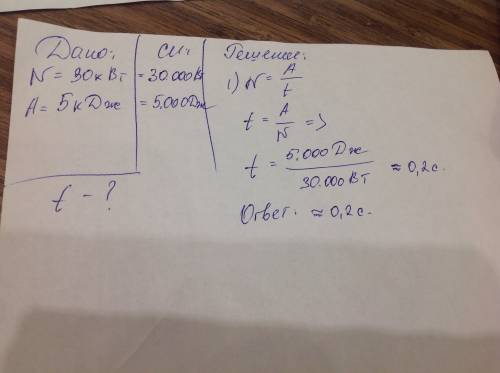 Дано:
N = 30 кВт
A = 5 кДж
t - ?
си:
= 30.000Вт
= 5.000Дж
Решение:
1) N = A / t
t = A / N =>
t = 5.000 Дж / 30.000 Вт ≈ 0,2 с.
Ответ: ≈ 0,2 с.